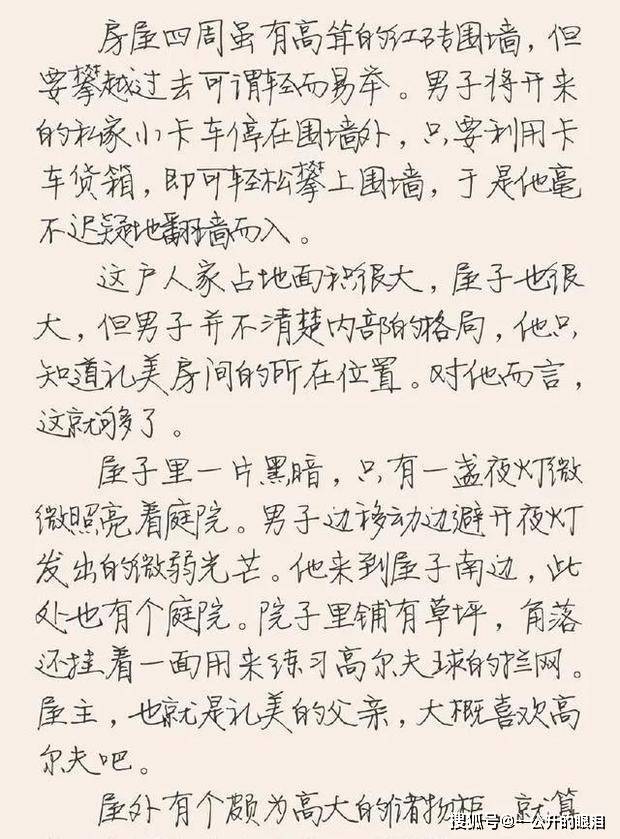 房屋四周虽有高耸的红砖围墙，但
要攀越过去可谓轻而易举。男子将开来
的私家小卡车停在围墙外，只要利用卡
车货箱，即可轻松攀上围墙，于是他毫
不迟疑地翻墙而入。
这户人家占地面积很大，屋子也很
大，但男子并不清楚内部的格局，他只
知道礼美房间的所在位置。对他而言，
这就够了。
屋子里一片黑暗，只有一盏夜灯微
微照亮着庭院。男子边移动边避开夜灯
发出的微弱光芒。他来到屋子南边，此
处也有个庭院。院子里铺有草坪，角落
还挂着一面用来练习高尔夫球的拦网。
屋主，也就是礼美的父亲，大概喜欢高
尔夫吧。
屋外有个颇为高大的储物柜，就算
搜狐号@一公开的眼泪